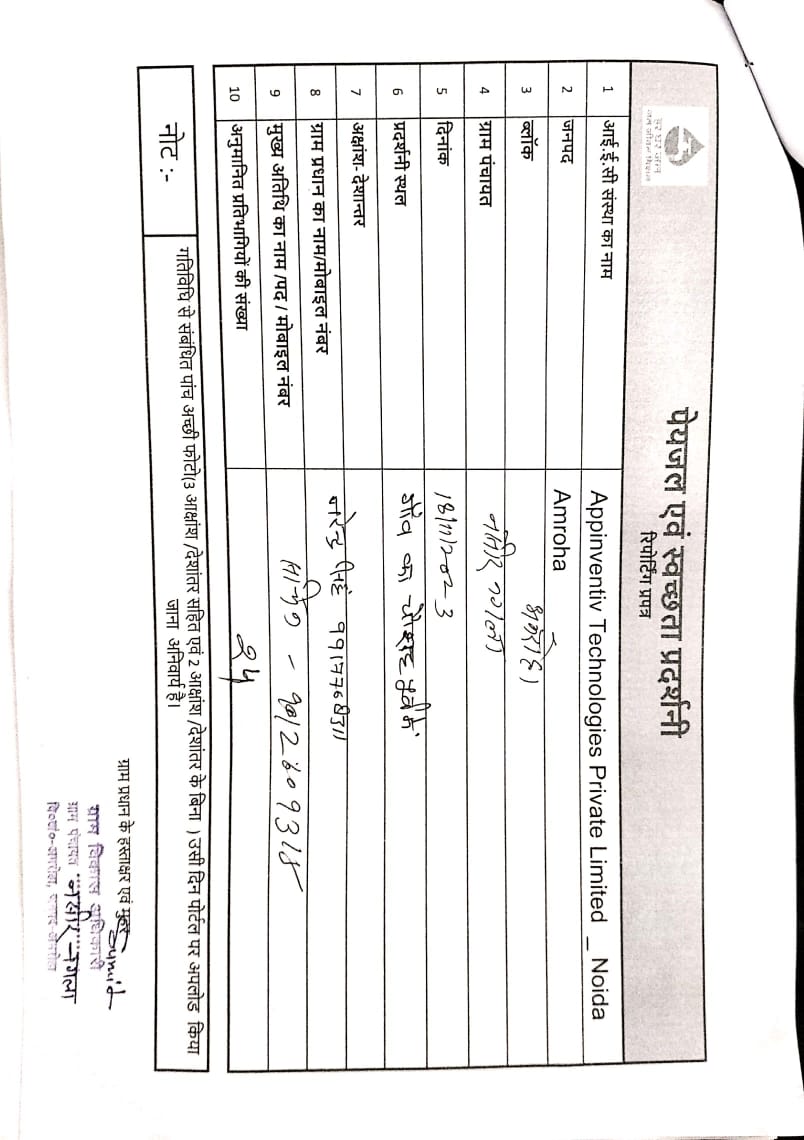 हर घर जल
जल जीवन मिशन
पेयजल एवं स्वच्छता प्रदर्शनी
रिपोर्टिंग प्रपत्र
1 आई.ई.सी संस्था का नाम Appinventiv Technologies Private Limited _ Noida
2 जनपद Amroha
3 ब्लॉक अमरोहा
4 ग्राम पंचायत
5 दिनांक 18/11/2023
6 प्रदर्शनी स्थल गाँव का
7 अक्षांश-देशान्तर
8 ग्राम प्रधान का नाम/मोबाइल नंबर नरेन्द्र सिंह
9 मुख्य अतिथि का नाम /पद / मोबाइल नंबर
10 अनुमानित प्रतिभागियों की संख्या
नोट :-
गतिविधि से संबंधित पांच अच्छी फोटो(3 आक्षांश /देशांतर सहित एवं 2 आक्षांश /देशांतर के बिना ) उसी दिन पोर्टल पर अपलोड किया
जाना अनिवार्य है।
ग्राम प्रधान के हस्ताक्षर एवं मुहर
Sumit
ग्राम विकास अधिकारी
ग्राम पंचायत